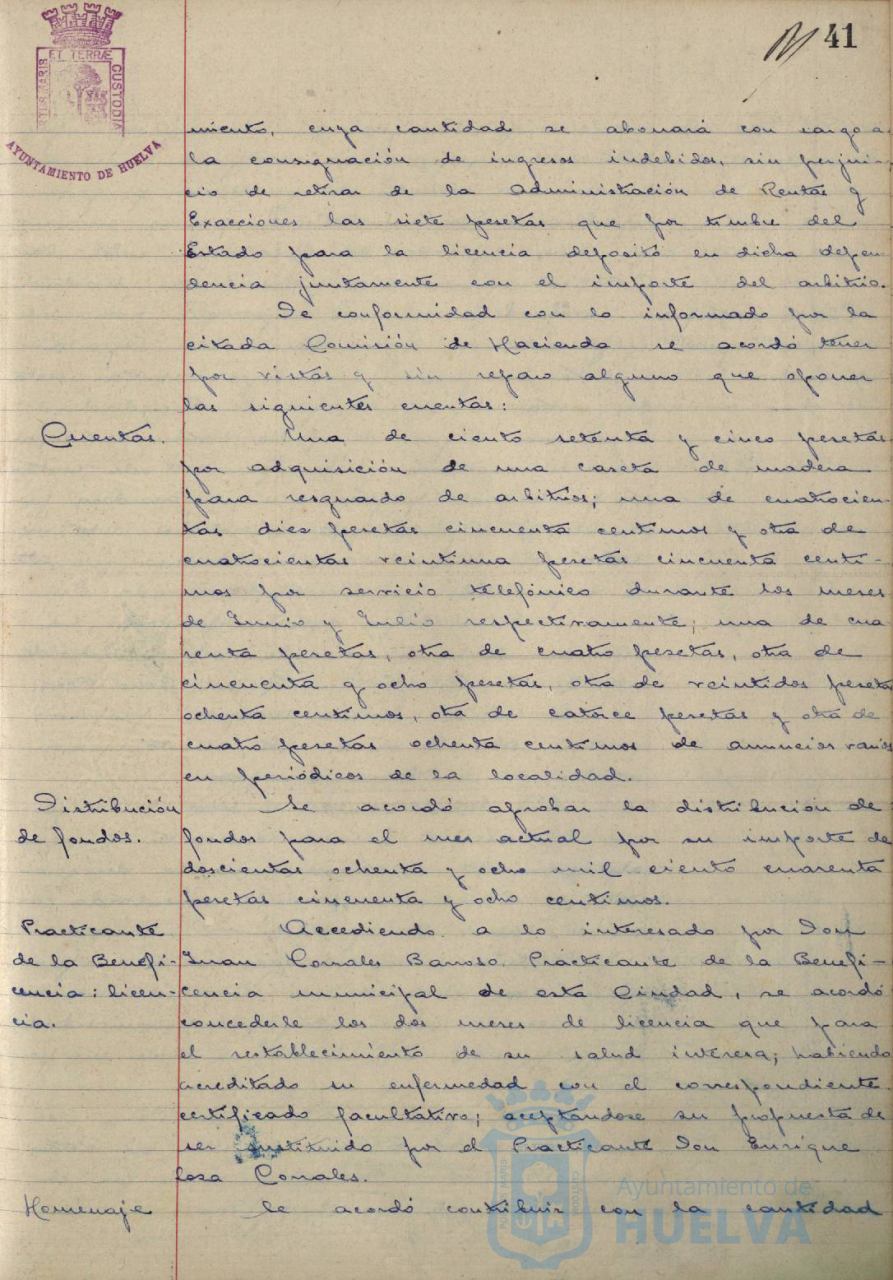 41
PORTUS MARIS ET TERRÆ CUSTODIA
AYUNTAMIENTO DE HUELVA
miento, cuya cantidad se abonará con cargo a
la consignación de ingresos indebidos, sin perjui-
cio de retirar de la Administración de Rentas y
Exacciones las siete pesetas que por timbre del
Estado para la licencia depositó en dicha depen
dencia juntamente con el importe del arbitrio.
De conformidad con lo informado por la
citada Comisión de Hacienda se acordó tener
por vistas y sin reparo alguno que oponer
las siguientes cuentas:
Cuentas.
Una de ciento setenta y cinco pesetas
por adquisición de una caseta de madera
para resguardo de arbitrios; una de cuatrocien-
tas diez pesetas cincuenta centimos y otra de
cuatrocientas veintiuna pesetas cincuenta centi-
mos por servicio telefónico durante los meses
de Junio y Julio respectivamente; una de cua
renta pesetas, otra de cuatro pesetas, otra de
cincuenta y ocho pesetas, otra de veintidos pesetas
ochenta centimos, otra de catorce pesetas y otra de
cuatro pesetas ochenta centimos de anuncios varios
en periódicos de la localidad.
Distribución
de fondos.
Se acordó aprobar la distribución de
fondos para el mes actual por su importe de
doscientas ochenta y ocho mil ciento cuarenta
pesetas cincuenta y ocho centimos.
Practicante
de la Benefi-
cencia: licen-
cia.
Accediendo a lo interesado por Don
Juan Corrales Barroso, Practicante de la Benefi-
cencia municipal de esta Ciudad, se acordó
concederle los dos meses de licencia que para
el restablecimiento de su salud interesa; habiendo
acreditado su enfermedad con el correspondiente
certificado facultativo; aceptandose su propuesta de
ser sustituido por el Practicante Don Enrique
Corrales.
Homenaje
Se acordó contribuir con la cantidad
Ayuntamiento de
HUELVA